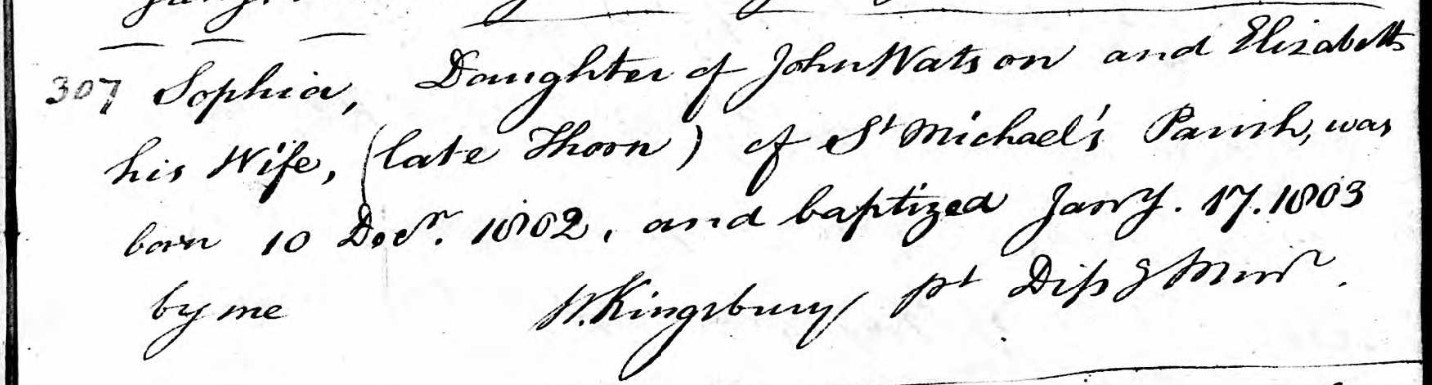 307 Sophia, Daughter of John Watson and Elizabeth
his Wife, (late Thorn) of St Michael's Parish, was
born 10 Decr. 1802, and baptized Jany. 17. 1803
by me W. Kingsbury pt Dissg Minr.